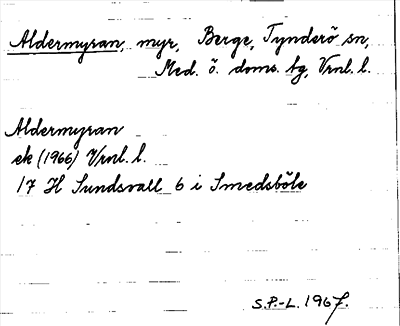 Aldermyran, myr, Berge, Tynderö sn,
Med. ö. doms. tg, Vrnl. l.
Aldermyran
ek (1966) Vrnl. l.
17 H Sundsvall 6 i Smedsböle
S.P.-L. 1967.